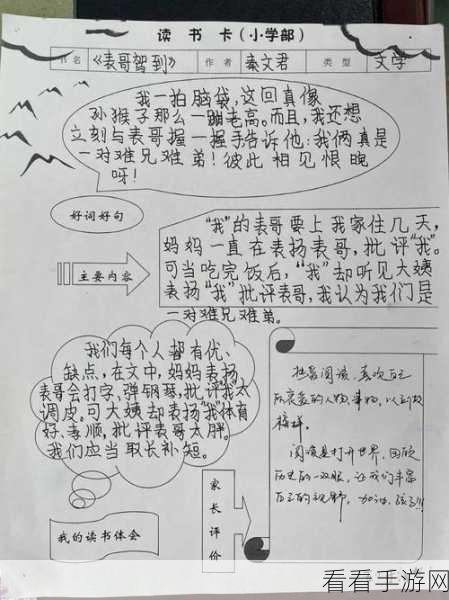 读 书 卡（小学部）
书名 《表哥驾到》 作者 秦文君 类型 文学
我一拍脑袋，这回真像
孙猴子那么一蹦老高。而且，我还想
立刻与表哥握一握手告诉他：我俩真是
一对难兄难弟！彼此相见恨晚
呀！
好词好句
“我”的表哥要上我家住几天，
妈妈一直在表扬表哥，批评“我”。
可当吃完饭后，“我”却听见大姨
表扬“我”批评表哥，我认为我们是
一对难兄难弟。
主要内容
我们每个人都有优、
缺点，在文中，妈妈表扬
表哥会打字、弹钢琴，批评我太
调皮。可大姨却表扬“我”体育
好、孝顺，批评表哥太胖。
我们应当取长补短。
我的读书体会
家长评价
阅读是打开世界、回顾
历史的一双眼，让我们丰富
自己的视野。加油，孩子!!!
看看手游网